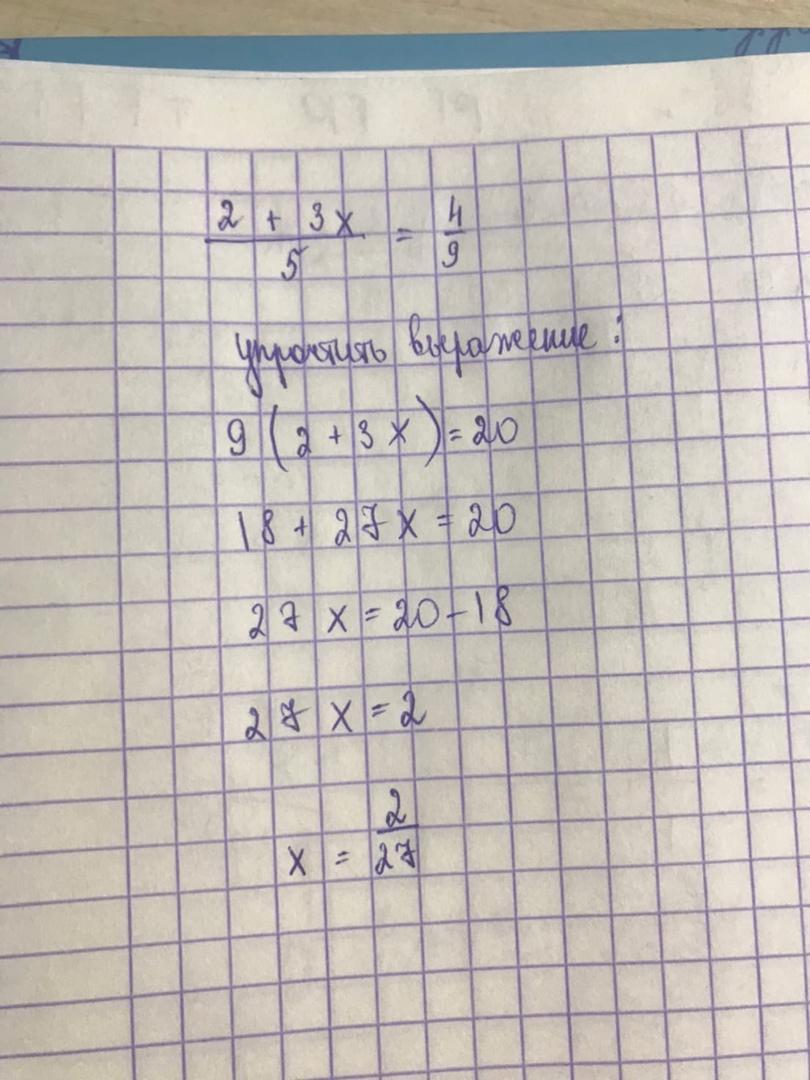 2 + 3x / 5 = 4/9
упростить выражение:
9 (2 + 3x) = 20
18 + 27x = 20
27x = 20 - 18
27x = 2
x = 2/27